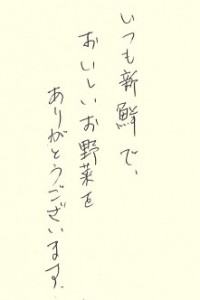 いつも新鮮で、
おいしいお野菜を
ありがとうございます.